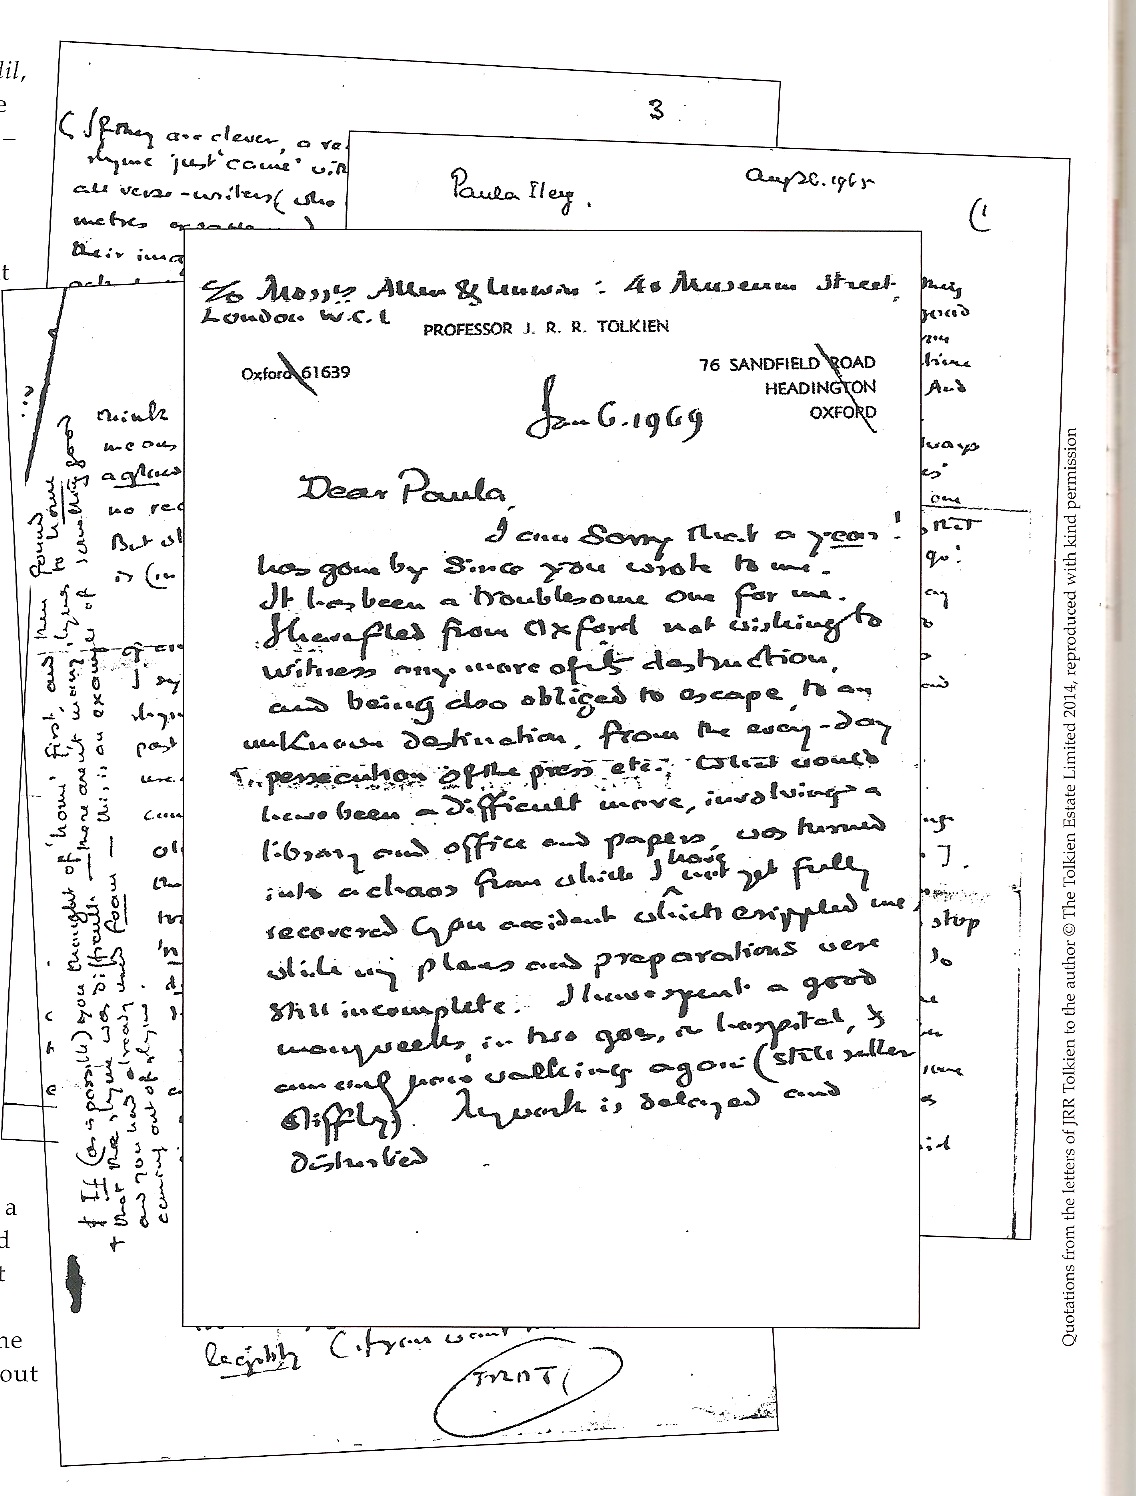 dil,
e
–
t
3
(If they are clever, a re
rhyme just 'came' with
all verse-writers (who
metres
their imag
Paula Iley.
Aug 26. 1965
(1
c/o Messrs Allen & Unwin : 40 Museum Street,
London W.C.1
PROFESSOR J. R. R. TOLKIEN
Oxford 61639
76 SANDFIELD ROAD
HEADINGTON
OXFORD
Jan 6. 1969
Dear Paula,
I am sorry that a year!
has gone by since you wrote to me.
It has been a troublesome one for me.
I have fled from Oxford not wishing to
witness any more of its destruction,
and being also obliged to escape, to an
unknown destination, from the every-day
persecution of the press etc.; What would
have been a difficult move, involving a
library and office and papers, was turned
into a chaos from which I have not yet fully
recovered by an accident which crippled me
while my plans and preparations were
still incomplete. I have spent a good
many weeks, in two goes, in hospital, &
am only now walking again (still rather
stiffly). My work is delayed and
disturbed
think
means
a glass
no rec
But
is (in
past
use
com
the
they
And
always
one
that
go!
stop
to
‡ If (as is possible) you thought of 'homi' first, and then found
that the rhyme was difficult — there aren't many rhymes to home
and you had already used foam — this is an example of something good
coming out of rhyme.
legibly (if you want
JRRT
a
d
t
he
out
Quotations from the letters of JRR Tolkien to the author © The Tolkien Estate Limited 2014, reproduced with kind permission